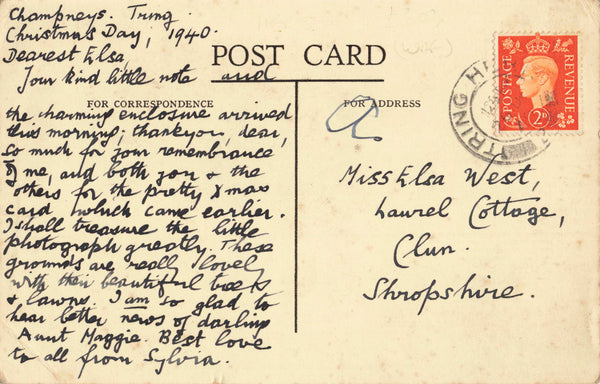 Champneys. Tring.
Christmas Day, 1940.
Dearest Elsa,
POST CARD
Your kind little note and
FOR CORRESPONDENCE
the charming enclosure arrived
this morning; thankyou, dear,
so much for your remembrance
of me, and both you & the
others for the pretty Xmas
card which came earlier.
I shall treasure the little
photograph greatly. These
grounds are really lovely
with their beautiful trees
& lawns. I am so glad to
hear better news of darling
Aunt Maggie. Best love
to all from Sylvia.
FOR ADDRESS
Miss Elsa West,
Laurel Cottage,
Clun.
Shropshire.
POSTAGE
REVENUE
2D
TRING